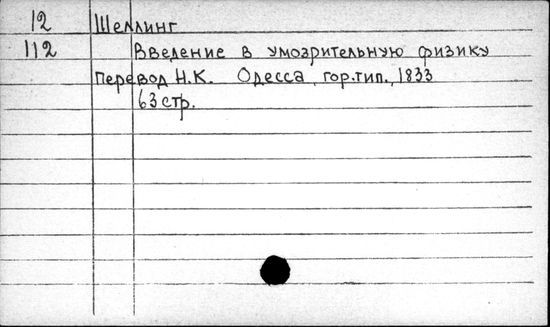 12 Шеллинг
112 Введение в умозрительную физику
перевод Н.К. Одесса, гор.тип., 1833
63 стр.